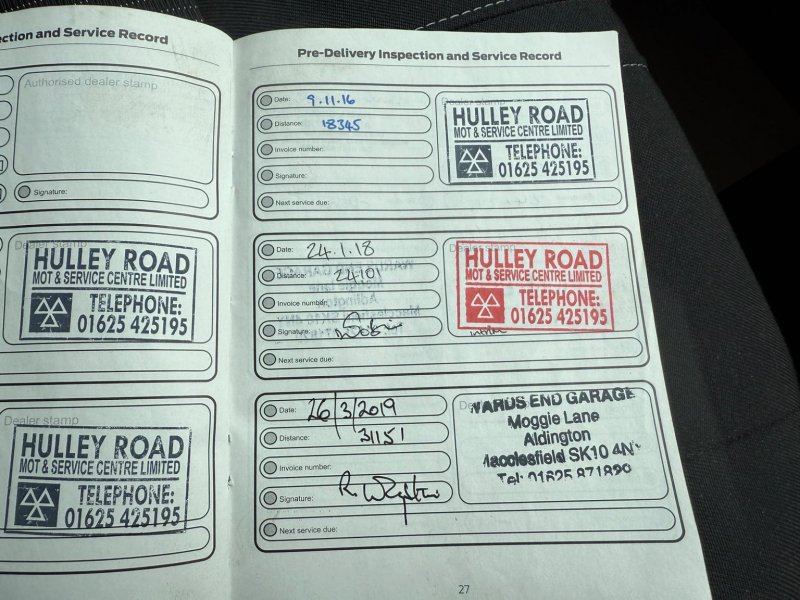 ction and Service Record
Authorised dealer stamp
Signature:
Dealer stamp
HULLEY ROAD
MOT & SERVICE CENTRE LIMITED
TELEPHONE:
01625 425195
Dealer stamp
HULLEY ROAD
MOT & SERVICE CENTRE LIMITED
TELEPHONE:
01625 425195
Pre-Delivery Inspection and Service Record
Date: 9.11.16
Distance: 18345
Invoice number:
Signature:
Next service due:
Dealer stamp
HULLEY ROAD
MOT & SERVICE CENTRE LIMITED
TELEPHONE:
01625 425195
Date: 24.1.18
Distance: 24101
Invoice number:
Signature:
Next service due:
Dealer stamp
HULLEY ROAD
MOT & SERVICE CENTRE LIMITED
TELEPHONE:
01625 425195
Date: 26/3/2019
Distance: 31151
Invoice number:
Signature:
Next service due:
WARDS END GARAGE
Moggie Lane
Aldington
Macclesfield SK10 4N
Tel: 01625 871890
27